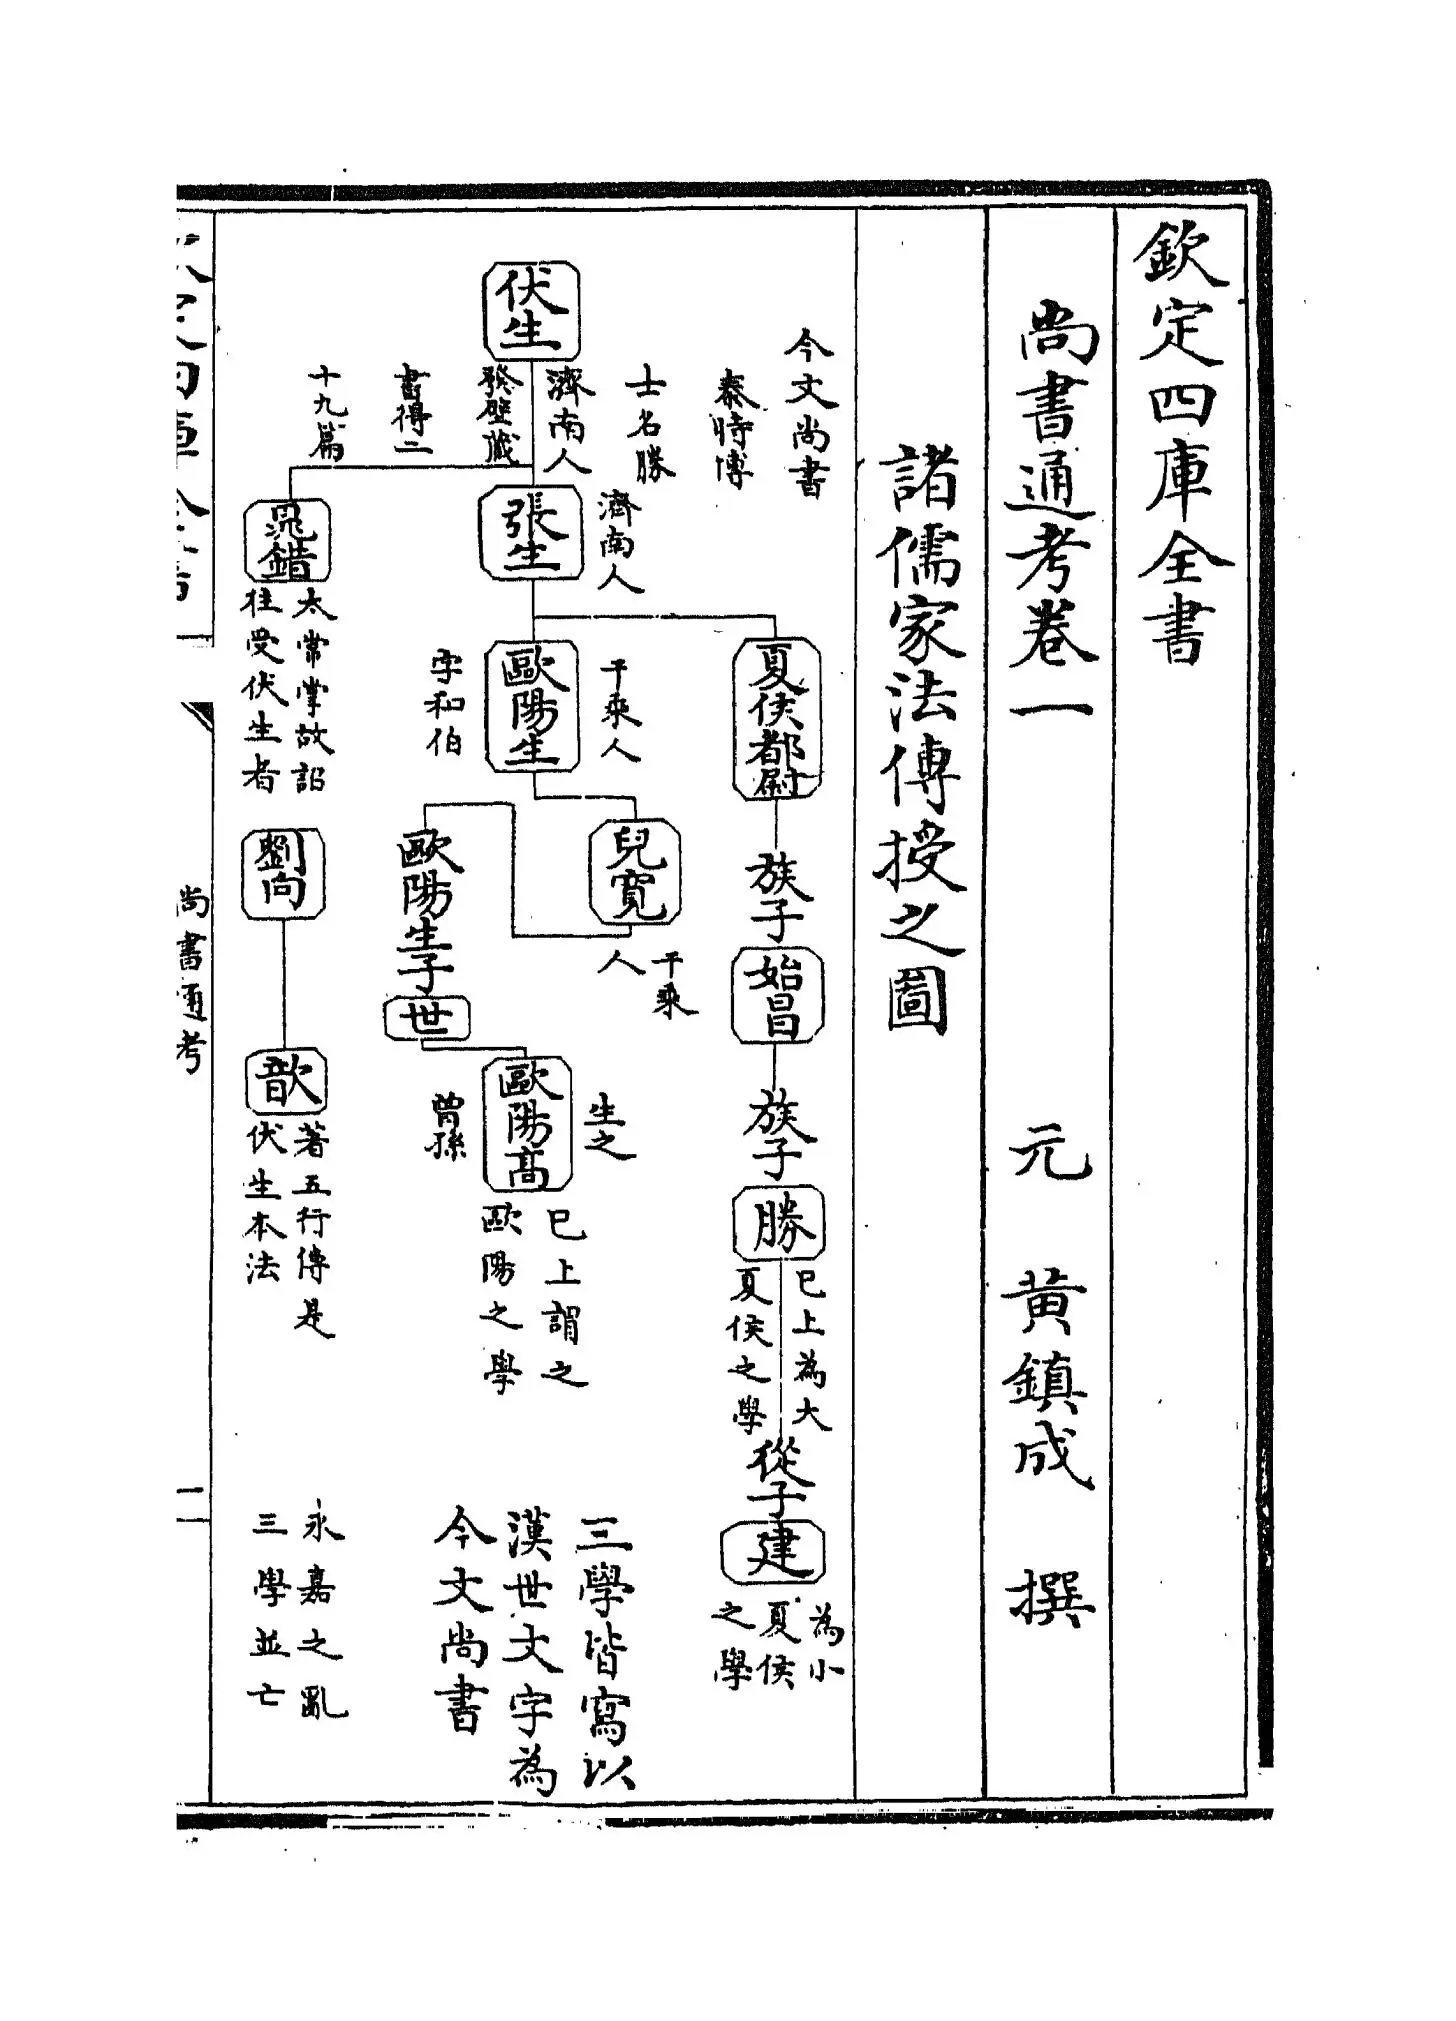 欽定四庫全書
尚書通考卷一
元 黃鎮成 撰
諸儒家法傳授之圖
今文尚書
伏生
濟南人
秦時博
士名勝
發壁藏
書得二
十九篇
張生
濟南人
夏侯都尉
族子
始昌
族子
勝
已上為大
夏侯之學
從子
建
為小
夏侯
之學
歐陽生
千乘人
字和伯
兒寬
千乘
人
歐陽生子
世
歐陽高
生之
曾孫
已上謂之
歐陽之學
三學皆寫以
漢世文字為
今文尚書
晁錯
太常掌故詔
往受伏生者
劉向
歆
著五行傳是
伏生本法
永嘉之亂
三學並亡
尚書通考
一